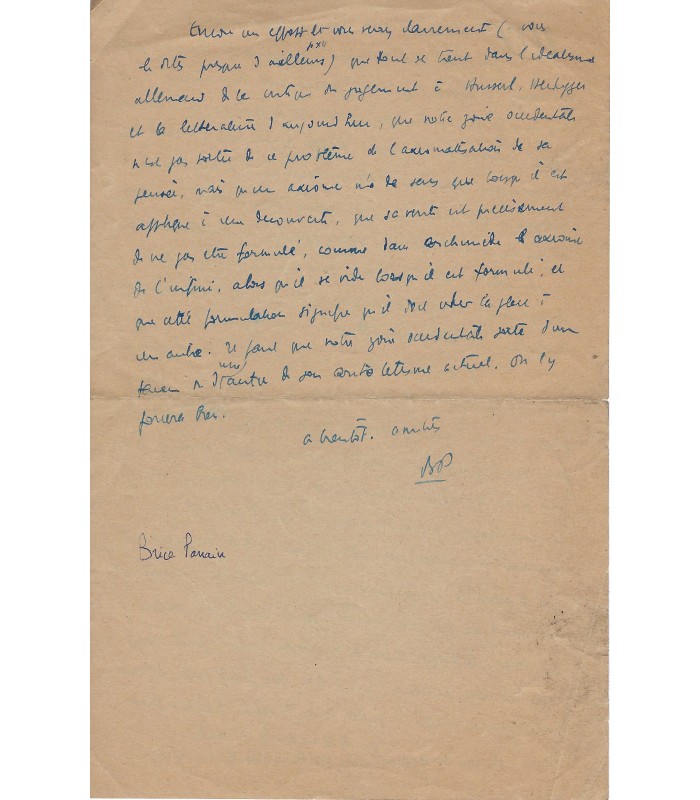 Encore un effort et vous verrez clairement (vous
le dites presque d'ailleurs) que tout se tient dans l'idéalisme
p XII
allemand de la critique du jugement à Husserl, Heidegger
et la littérature d'aujourd'hui, que notre occidentale
n'est pas sortie de ce problème de l'axiomatisation de sa
pensée, mais qu'un axiome n'a de sens que lorsqu'il est
appliqué à une découverte, que sa vertu est précisément
de ne pas être formulé, comme dans Archimède l'axiome
de l'infini, alors qu'il se vide lorsqu'il est formulé, et
que cette formulation signifie qu'il doit céder la place à
un autre. Il faut que notre occidentale sorte d'un
de son actuel. On l'y
forcera bien.
à bientôt. amitiés
BP
Brice Parain